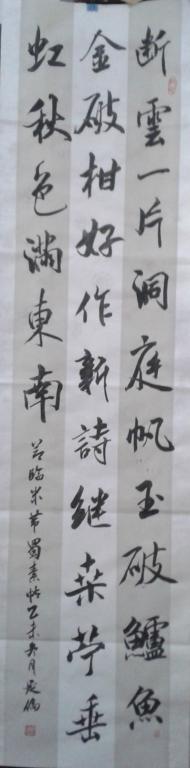 断雲一片洞庭帆玉破鱸魚
金破柑好作新詩継桑苧垂
虹秋色滿東南
節臨米芾蜀素帖乙未冬月